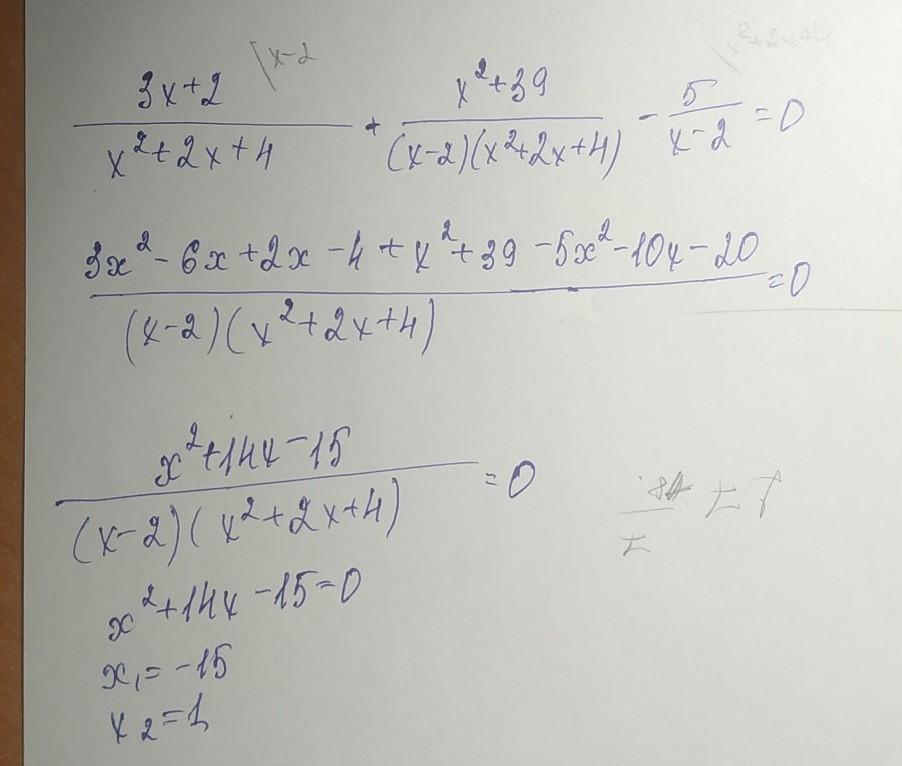 (3x+2)/(x²+2x+4) \x-2 + (x²+39)/((x-2)(x²+2x+4)) - 5/(x-2) \x²+2x+4 = 0
(3x²-6x+2x-4+x²+39-5x²-10x-20)/((x-2)(x²+2x+4)) = 0
(x²+14x-15)/((x-2)(x²+2x+4)) = 0
x²+14x-15=0
x₁=-15
x₂=1